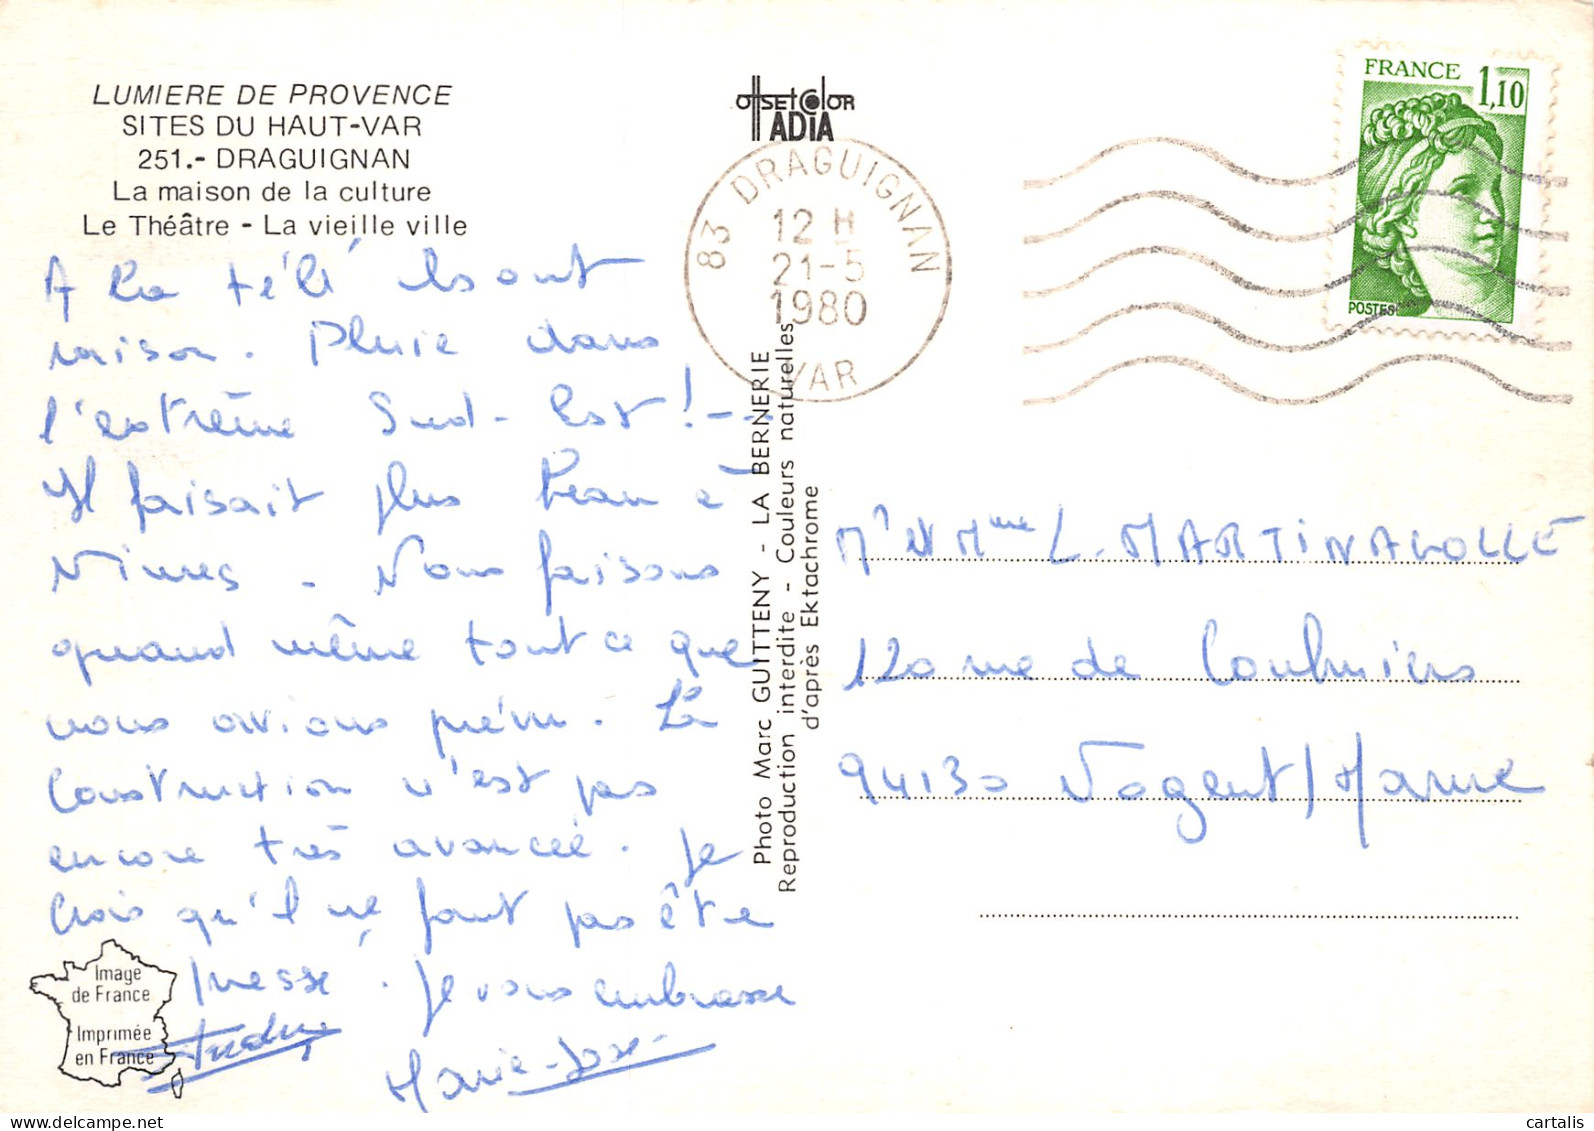 LUMIERE DE PROVENCE
SITES DU HAUT-VAR
251.- DRAGUIGNAN
La maison de la culture
Le Théâtre - La vieille ville
OffsetColor
ADIA
83 DRAGUIGNAN
12 H
21-5
1980
VAR
FRANCE 1,10
POSTES
A la télé ils ont
raison. Pluie dans
l'extrême Sud-Est !---
Il faisait plus beau à
Nîmes. Nous faisons
quand même tout ce que
nous avions prévu. La
Construction n'est pas
encore très avancée. Je
crois qu'il ne faut pas être
pressé. Je vous embrasse
Marie-Jose
Photo Marc GUITTENY - LA BERNERIE
Reproduction interdite - Couleurs naturelles
d'après Ektachrome
Mr et Mme L. MARTINAGOLLE
120 rue de Coulmiers
94130 Nogent/Marne
Image
de France
Imprimée
en France
cartalis
www.delcampe.net